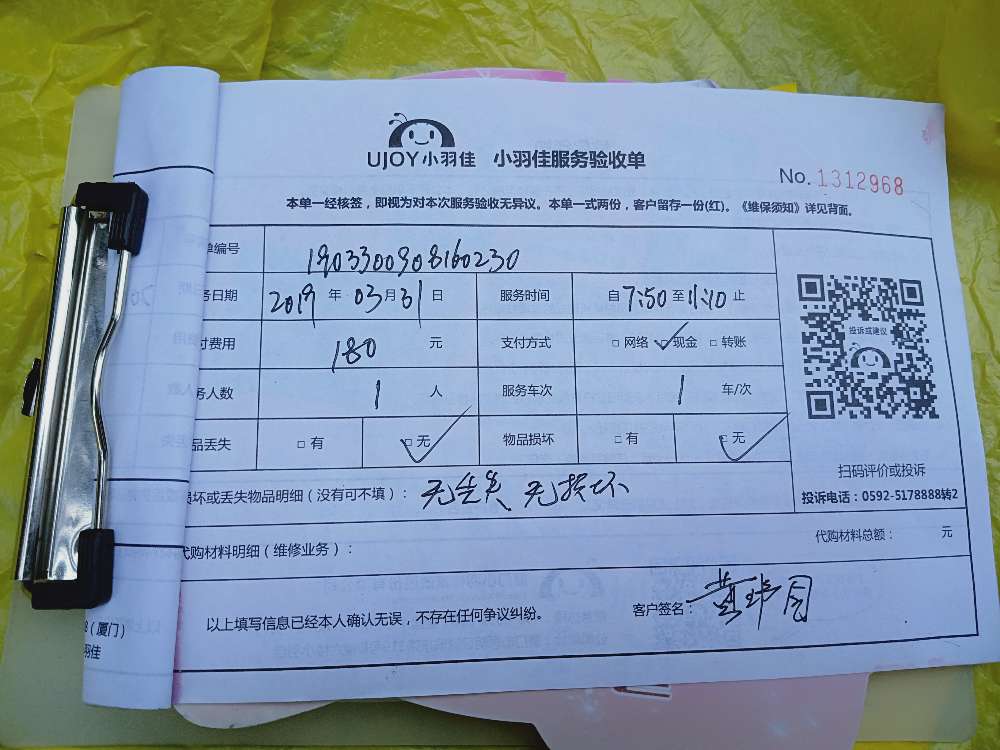 UJOY小羽佳 小羽佳服务验收单
No. 1312968
本单一经核签，即视为对本次服务验收无异议。本单一式两份，客户留存一份(红)。《维保须知》详见背面。
单编号 1903300908160230
务日期 2019 年 03 月 31 日 服务时间 自 7:50 至 11:40 止
付费用 180 元 支付方式 □ 网络 ✓ □ 现金 □ 转账
务人数 1 人 服务车次 1 车/次
品丢失 □ 有 □ 无 ✓ 物品损坏 □ 有 □ 无 ✓
投诉或建议
扫码评价或投诉
投诉电话：0592-5178888转2
损坏或丢失物品明细（没有可不填）： 无丢失 无损坏
代购材料明细（维修业务）： 代购材料总额： 元
以上填写信息已经本人确认无误，不存在任何争议纠纷。 客户签名：
（厦门）
羽佳